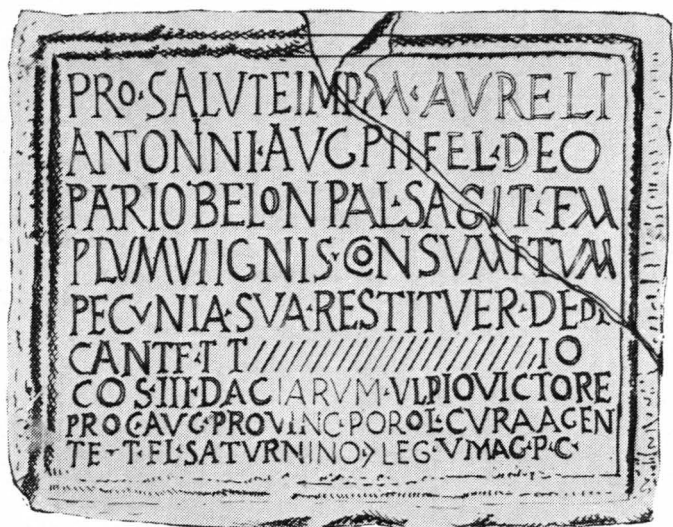 PRO·SALVTE IMP M·AVRELI
ANTONINI·AVG PII FEL·DEO
PATRIO BELO N PAL·SAGIT·TEM
PLVM VI IGNIS·CONSVMITVM
PECVNIA·SVA·RESTITVER·DEDI
CANTE·T T IO
COS·III·DACIARVM·VLPIO VICTORE
PROC·AVG·PROVINC·POROL·CVRA AGEN
TE·T·FL·SATVRNINO > LEG·V MAG·P·C·